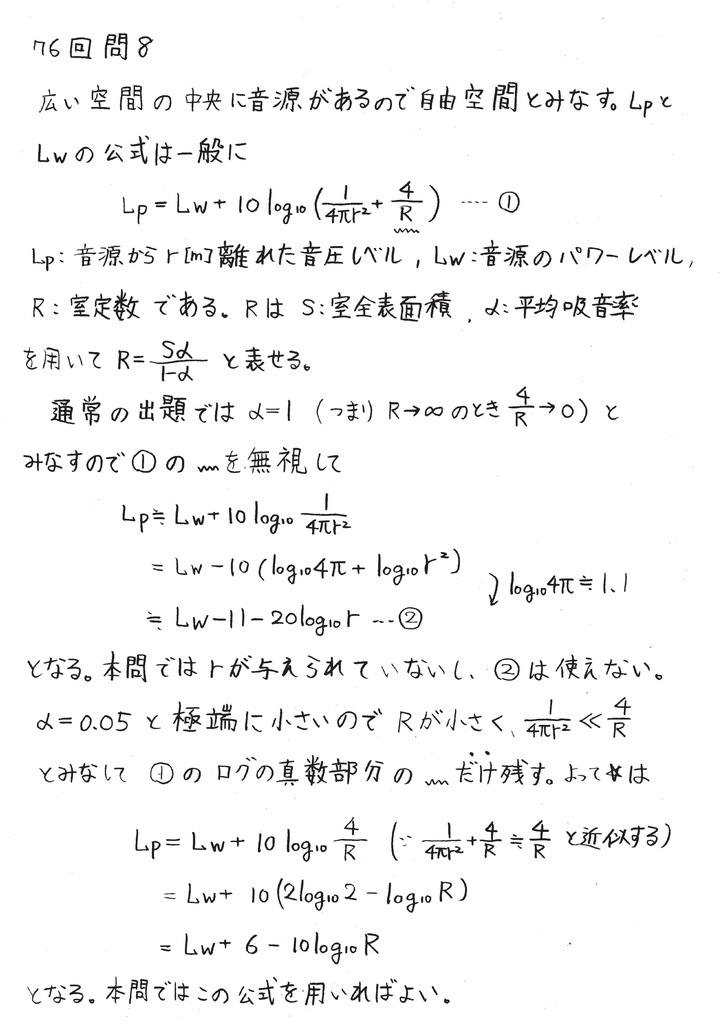 76回 問8
広い空間の中央に音源があるので自由空間とみなす。Lpと
Lwの公式は一般に
Lp = Lw + 10 log₁₀ (1/4πr² + 4/R) ‥‥ ①
Lp: 音源からr[m]離れた音圧レベル, Lw:音源のパワーレベル,
R: 室定数 である。RはS:室全表面積, α:平均吸音率
を用いて R= Sα/1-α と表せる。
通常の出題では α=1 (つまり R→∞のとき 4/R→0) と
みなすので①の〰を無視して
Lp≒ Lw + 10 log₁₀ 1/4πr²
= Lw - 10 (log₁₀4π + log₁₀r²)
log₁₀4π≒1.1
≒ Lw-11-20log₁₀r ‥‥②
となる。本問ではrが与えられていないし、②は使えない。
α=0.05 と極端に小さいので Rが小さく、1/4πr² ≪ 4/R
とみなして ①のログの真数部分の〰だけ残す。よって は
Lp = Lw + 10 log₁₀ 4/R (∵ 1/4πr² + 4/R ≒ 4/R と近似する)
= Lw + 10 (2log₁₀2 - log₁₀R)
= Lw + 6 - 10log₁₀R
となる。本問ではこの公式を用いればよい。